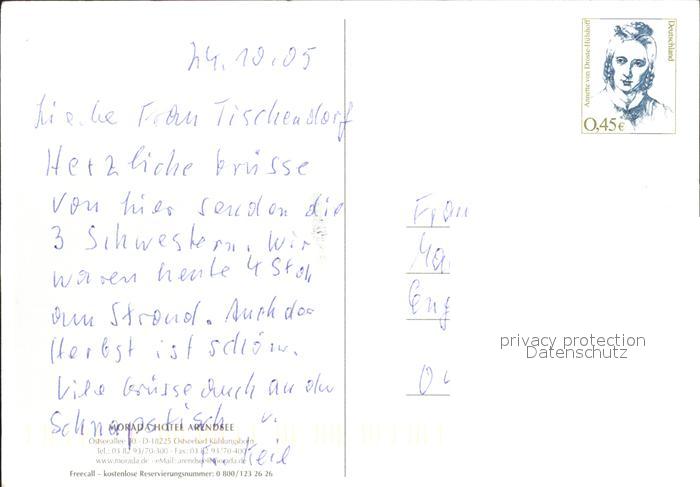 24.10.05
Liebe Frau Tischendorf
Herzliche Grüsse
von hier senden die
3 Schwestern. Wir
waren heute 4 Std
am Strand. Auch der
Herbst ist schön.
Viele Grüsse auch an den
Schnapstisch
Fr. Keil
MORADA HOTEL ARENDSEE
Ostseeallee 30 · D-18225 Ostseebad Kühlungsborn
Tel.: 03 82 93/70-300 · Fax: 03 82 93/70-400
www.morada.de · eMail: arendsee@morada.de
Freecall – kostenlose Reservierungsnummer: 0 800/123 26 26
Annette von Droste-Hülshoff
Deutschland
0,45€
Frau
Ma
Eng
privacy protection
Datenschutz